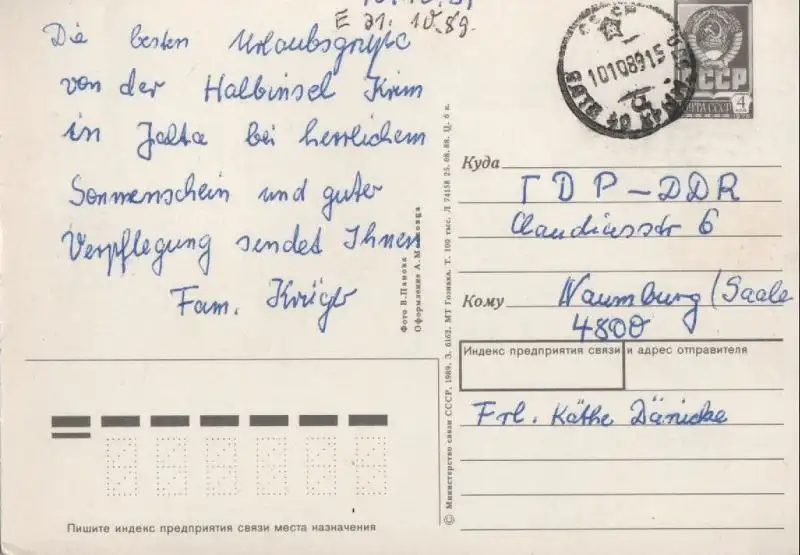 E 31. 10. 89.
Die besten Urlaubsgrüße
von der Halbinsel Krim
in Jalta bei herrlichem
Sonnenschein und guter
Verpflegung sendet Ihnen
Fam. Krüger
Фото В. Панова
Оформление А.
© Министерство связи СССР, 1989. З. 6162. МТ Гознака. Т. 100 тыс. Л 74158 25. 08. 88. Ц. 6 к.
Пишите индекс предприятия связи места назначения
СССР
ПОЧТА СССР
4
10108915
Куда
ГДР – DDR
Claudiusstr 6
Кому Naumburg (Saale
4800
Индекс предприятия связи и адрес отправителя
Frl. Käthe Dänicke